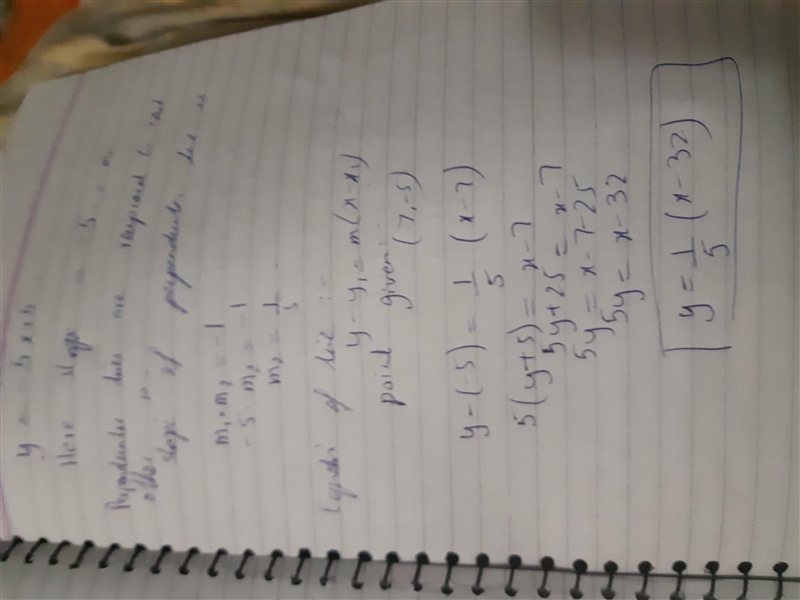 y = - 5x+3
Here slope = -5 = m1
Perpendicular lines are reciprocal to each
other so
slope of perpendicular line is
m1 · m2 = -1
-5 · m2 = -1
m2 = 1/5
Equation of line :-
y - y1 = m(x-x1)
point given:-
(7,-5)
y - (-5) = 1/5 (x-7)
5(y+5) = x-7
5y+25 = x-7
5y = x-7-25
5y = x-32
y = 1/5 (x-32)